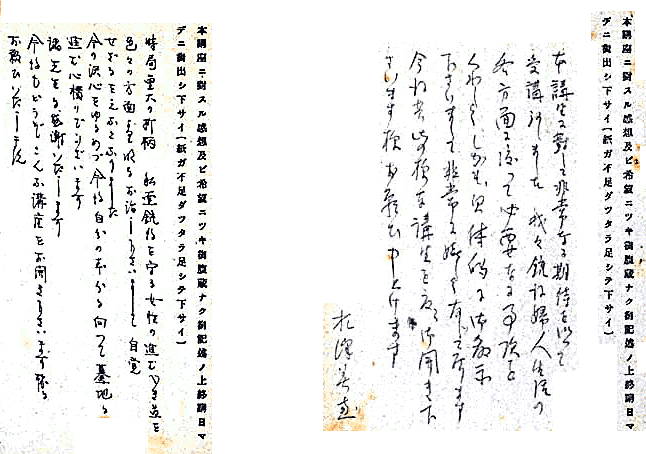 本講座ニ對スル感想及ビ希望ニツキ御腹蔵ナク御記述ノ上終講日マ
デニ御出シ下サイ(紙ガ不足ダツタラ足シテ下サイ)
本講座に對して非常なる期待を以て
受講致しました 我々銃後婦人生活の
各方面に渡つて必要なる事項を
くわしく、しかも具体的に御教示
下さいまして非常に嬉しく存じて居ります
今后共此の様な講座を度々御開き下
さいます様お願ひ申上げます
本講座ニ對スル感想及ビ希望ニツキ御腹蔵ナク御記述ノ上終講日マ
デニ御出シ下サイ(紙ガ不足ダツタラ足シテ下サイ)
時局重大の折柄 私達銃後を守る女性の進むべき道を
色々の方面より
今の決心をゆるめず今後自分の本分に向つて
進む心構りでございます
講師を感謝いたします
今後もどうぞこんな講座をお開き下さいます様
お願ひいたします